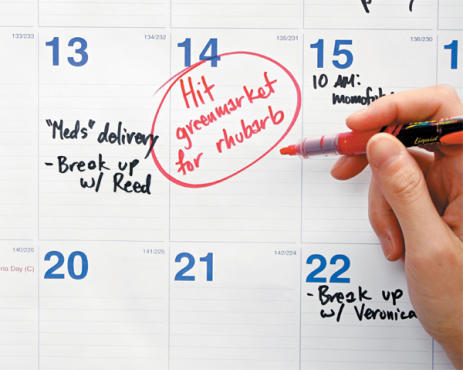 133/233
13
134/232
14
135/231
15
136/230
1
Hit
greenmarket
for rhubarb
10 AM:
"Meds" delivery
- Break up
w/ Reed
140/226
rio Day (C)
20
141/225
21
142/224
22
- Break up
w/ Veronica